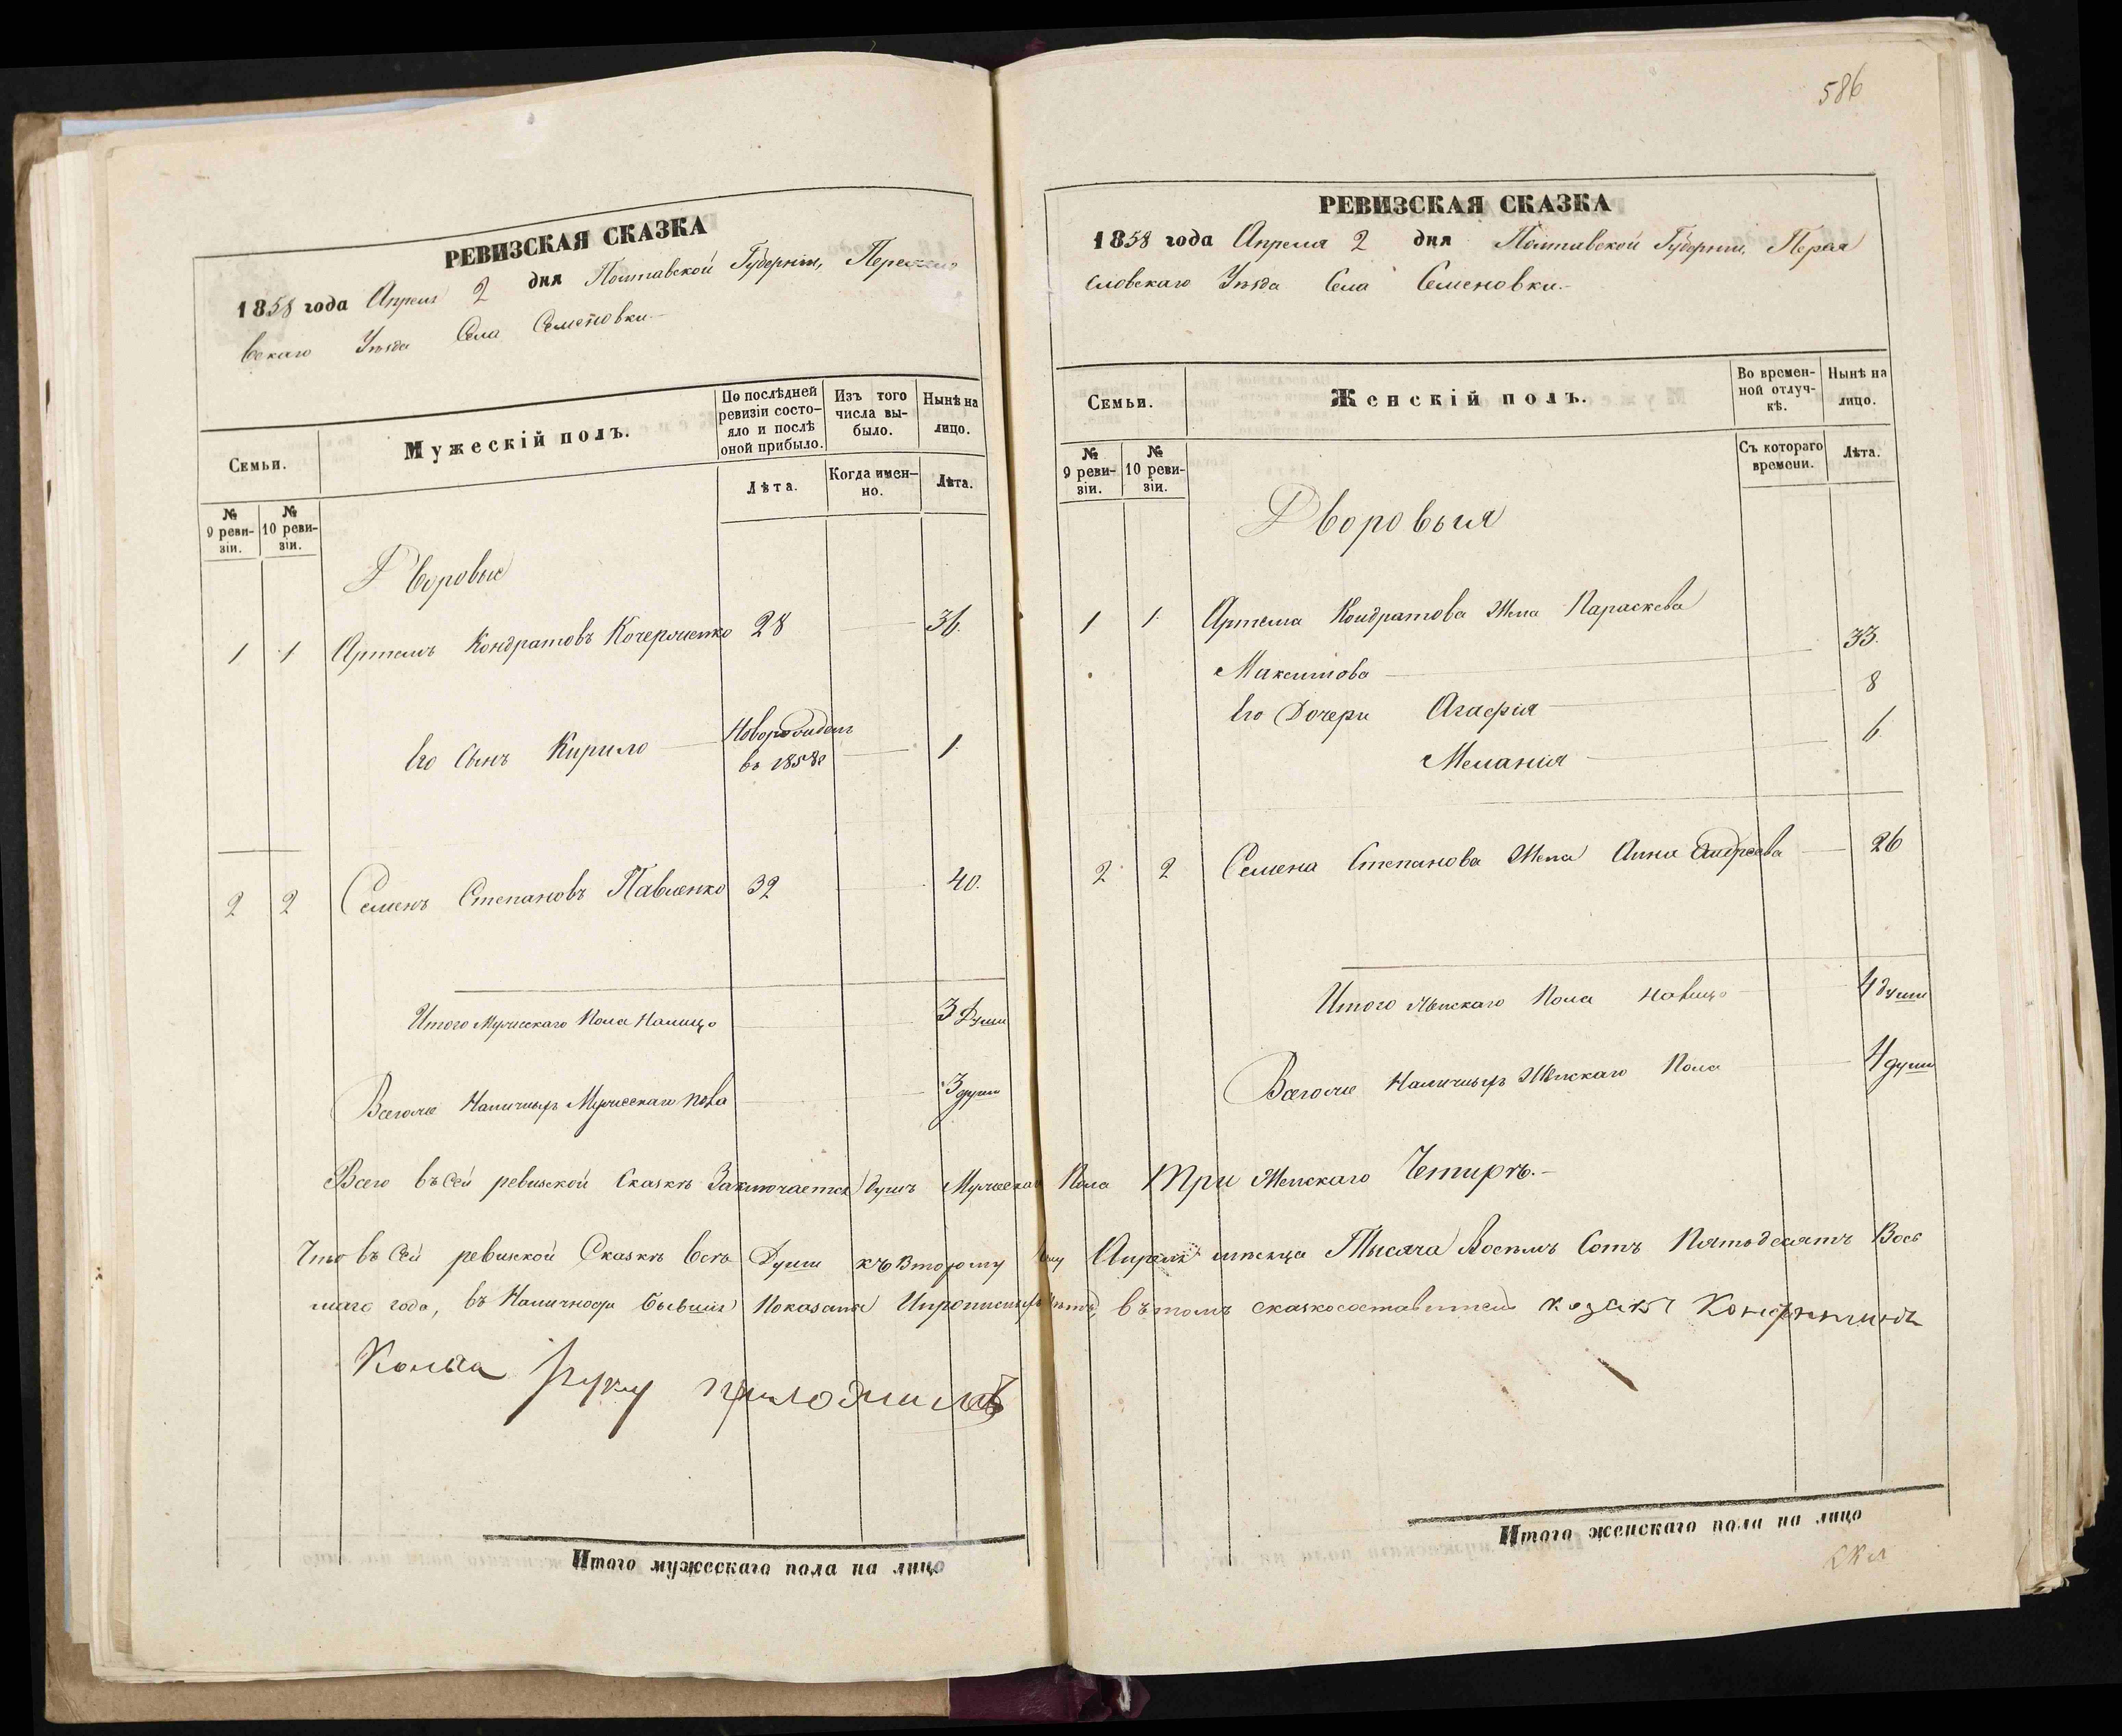 586
РЕВИЗСКАЯ СКАЗКА
1858 года Апреля 2 дня Полтавской Губерніи, Переясло
вскаго Уѣзда Села Семеновки.
Семьи.
Мужескій полъ.
По послѣдней ревизіи состо-
яло и послѣ оной прибыло.
Изъ того числа вы-
было.
Нынѣ на лицо.
№ 9 реви-
зіи.
№ 10 реви-
зіи.
Лѣта.
Когда имен-
но.
Лѣта.
Дворовые
1 1 Артемъ Кондратовъ 28 36.
Его Сынъ Кирило Новорожден
въ 1858г 1
2 2 Семенъ Степановъ Павленко 32 40.
Итого Мужескаго Пола Налицо 3 Души
Всегоже Наличныхъ Мужескаго пола 3 души
РЕВИЗСКАЯ СКАЗКА
1858 года Апреля 2 дня Полтавской Губерніи, Перея
словскаго Уѣзда Села Семеновки.
Семьи.
Женскій полъ.
Во времен-
ной отлуч-
кѣ.
Нынѣ на лицо.
№ 9 реви-
зіи.
№ 10 реви-
зіи.
Съ котораго времени.
Лѣта.
Дворовыя
1 1. Артема Кондратова Жена Параскева
Максимова 33.
Его Дочери Агафія 8
Меланія 6
2 2 Семена Степанова Жена Анна Андреева 26
Итого Женскаго Пола Налицо 4 души
Всегоже Наличныхъ Женскаго Пола 4 души
Всего въ Сей ревизской Сказкѣ Заключается душъ Мужескаго Пола Три Женскаго Четирѣ.
Что въ Сей ревизской Сказкѣ всѣ Души къ Второму Апреля мѣсяца Тысяча Восемъ Сотъ Пятьдесятъ Вось
маго года, въ Наличности бывшія Показаны въ томъ сказкосоставитель козакъ
руку приложилъ
Итого мужескаго пола на лицо
Итого женскаго пола на лицо